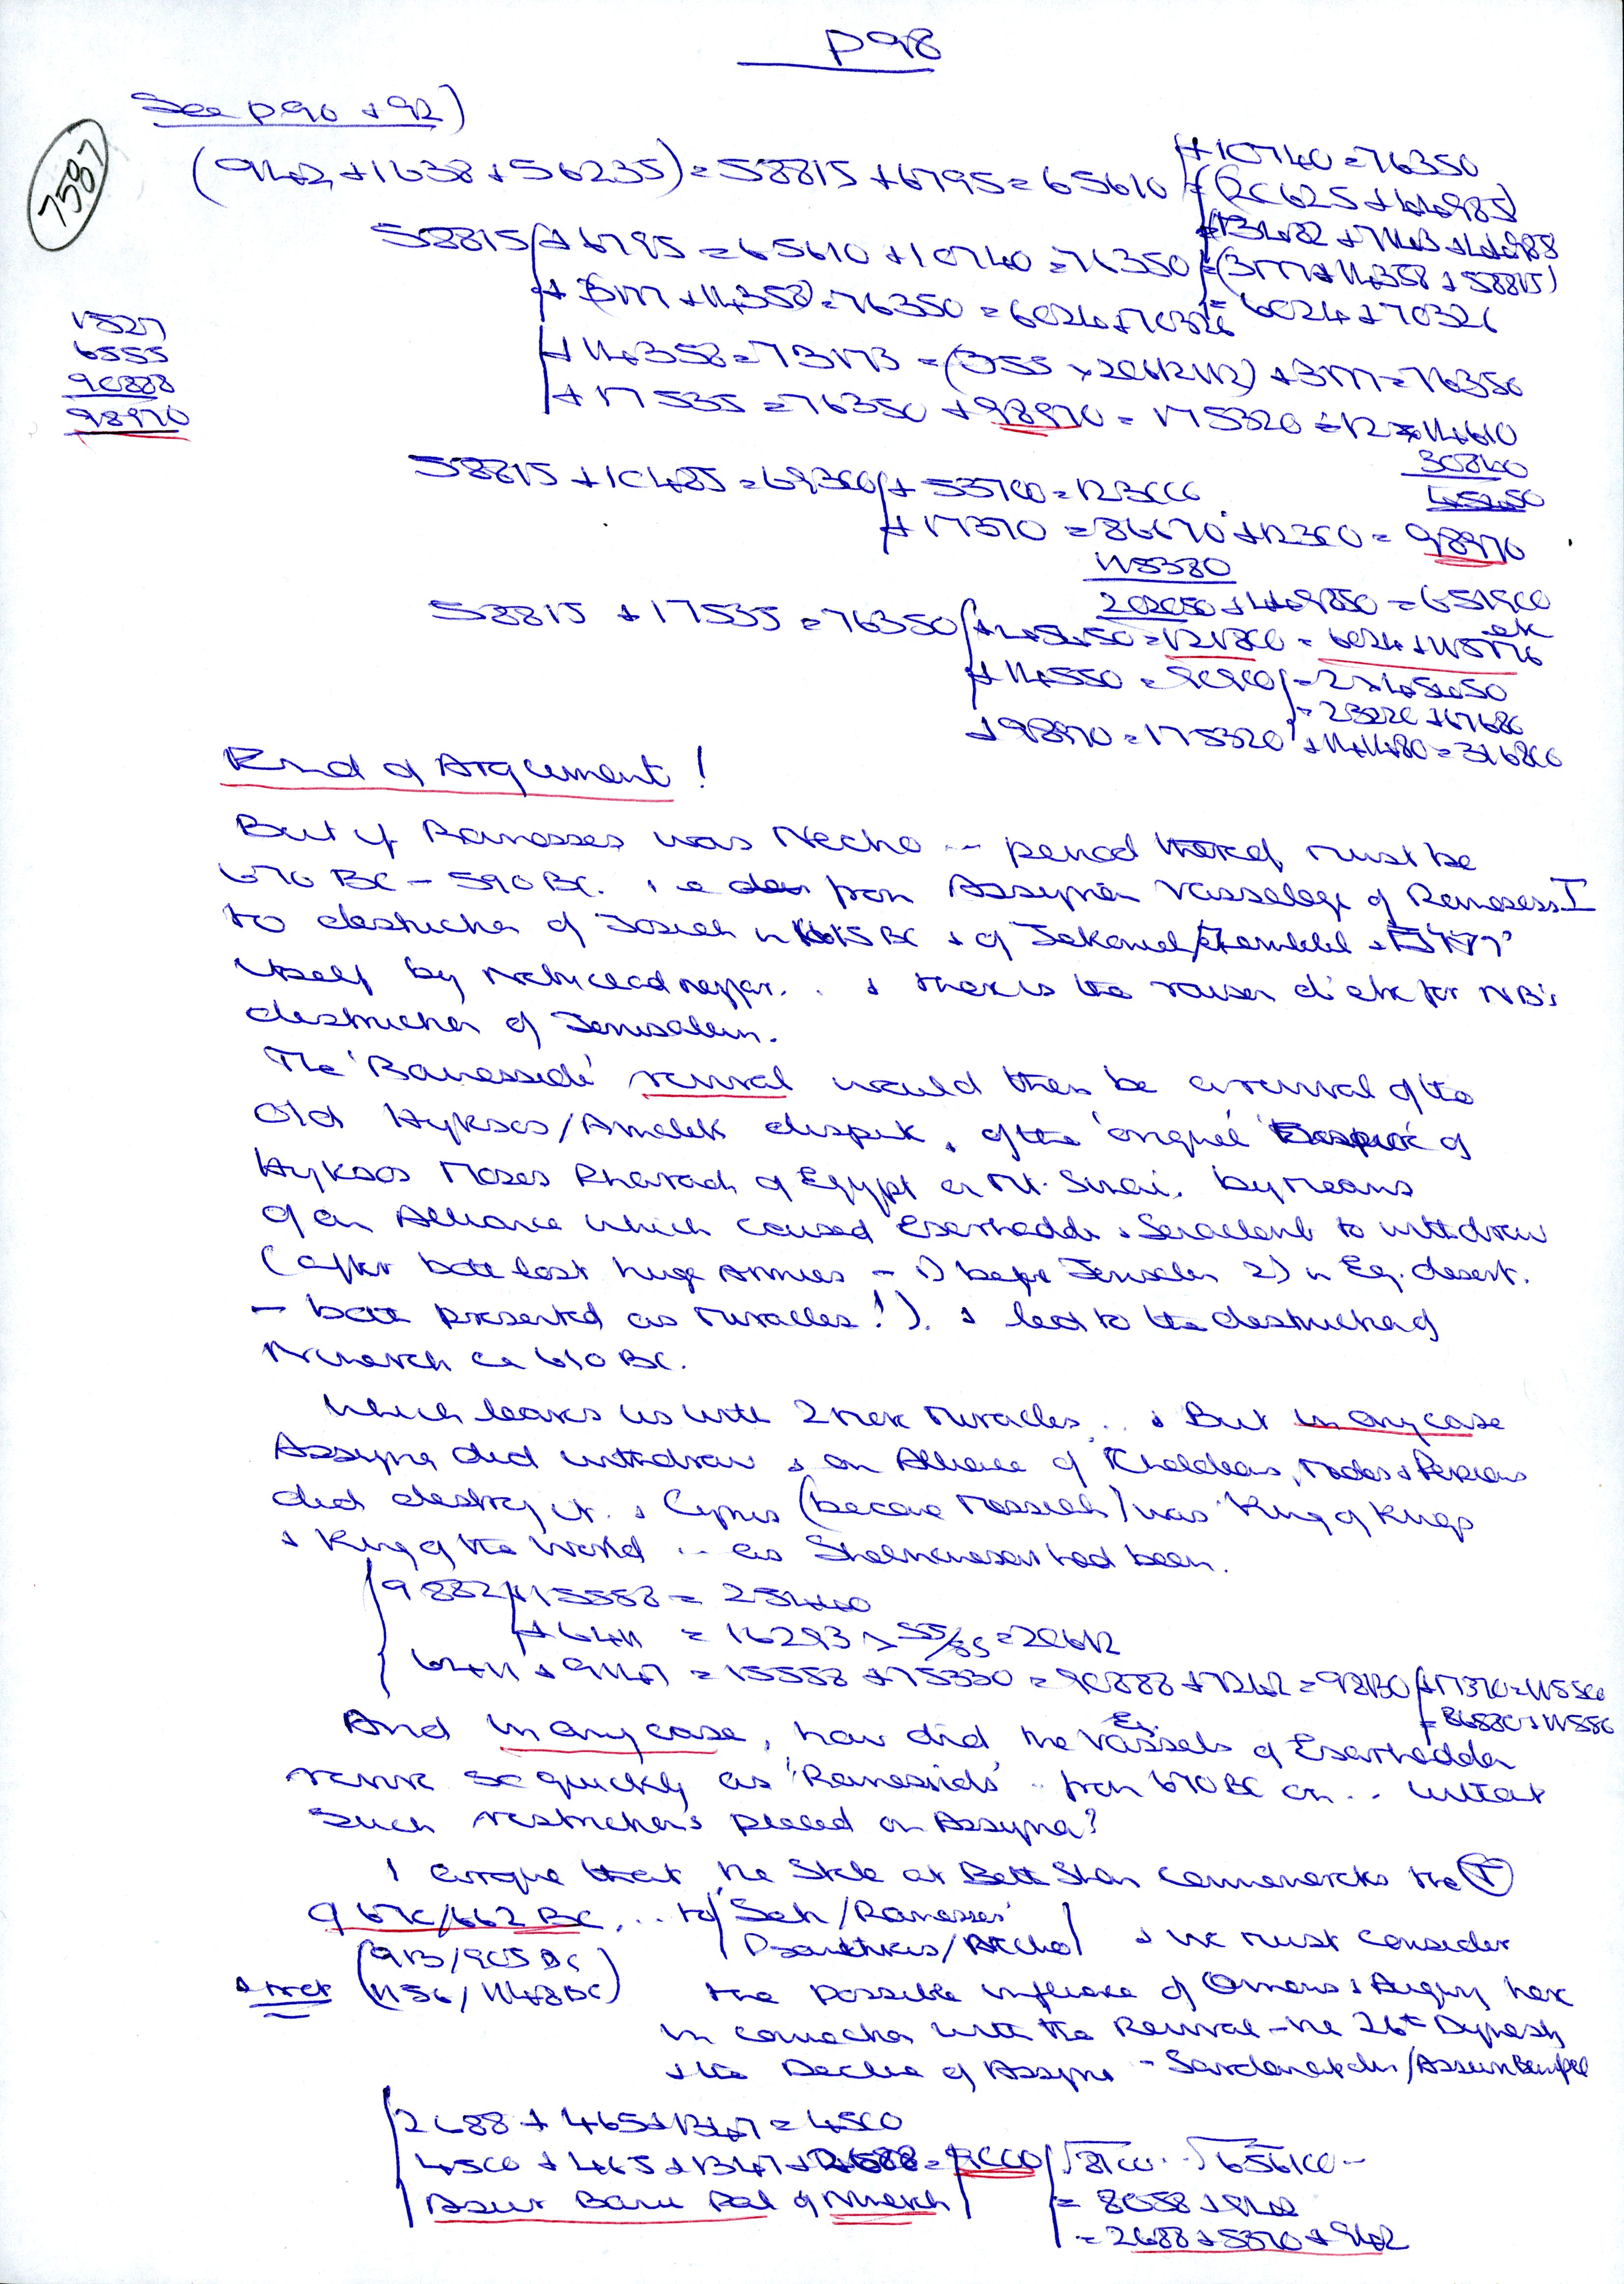 p98
See p90 + 92)
7587
(942 + 1638 + 56235) = 58815 + 6795 = 65610
+ 10740 = 76350
= (20625 + 44985)
58815 + 6795 = 65610 + 10740 = 76350
= (3177 + 14358 + 58815)
+ (3177 + 14358) = 76350 = 6024 + 70326
= 6024 + 70326
1527
6555
90888
98970
+ 14358 = 73173 = (355 × 206.12112) + 3177 = 76350
+ 17535 = 76350 + 98970 = 175320 ÷ 12 = 14610
30840
45450
58815 + 10485 = 69300 + 53700 = 123000
+ 17370 = 86670 + 12300 = 98970
115380
202050 + 449850 = 651900
58815 + 17535 = 76350 + 45450 = 121800 = 6024 + 115776
etc
+ 14550 = 90900 = 2 × 45450
= 23220 + 67680
+ 98970 = 175320 + 141480 = 316800
End of Argument!
But if Ramesses was Necho -- period thereof must be
670 BC - 590 BC. i e from Assyrian Vassalage of Ramesess I
to destruction of Josiah in 615 BC + of
itself by Nebucadnezzar. . + there is the raison d'etre for NB's
destruction of Jerusalem.
The 'Ramesside' revival would then be a revival of the
Old Hyksos/Amalek dispute, of the 'original' of
Hyksos Moses Pharaoh of Egypt on Mt. Sinai. by means
of an Alliance which caused Eserhaddon + Senacherib to withdraw
(after both lost huge Armies - 1) before Jerusalem 2) in Eg. desert.
- both presented as miracles!). + lead to the destruction of
Nineveh ca 610 BC.
Which leaves us with 2 more miracles. . + But in any case
Assyria did withdraw + an Alliance of Chaldeas, Medes + Persians
did destroy it. + Cyrus (became Messiah) was 'King of Kings
+ King of the World -- as Shalmanesar had been.
9882 + 15558 = 25440
+ 6411 = 16293 × 55/85 = 20612
6411 + 9147 = 15558 + 75330 = 90888 + 7242 = 98130 + 17370 = 115500
And in any case, how did the Eg. Vassals of Eserhaddon
revive so quickly as 'Ramessids' -- from 670 BC on. . without
such restrictions placed on Assyria?
I argue that the Stele at Beth Shan commemorates the T
of 670/662 BC. . . to Seti/Ramesses'
Psamthikis/Necho + we must consider
(913/905 BC
+ not (1156/1148 BC)
the possible influence of Omens + Augury here
in connection with the Revival - the 26th Dynasty
+ the Decline of Assyria - Sardanapalus/Assur Banipal
2688 + 465 + 1347 = 4500
4500 + 465 + 1347 + 2688 = 9000
√8100 -- √656100 --
Asur Bani Pal of Nineveh
= 8058 + 942
= 2688 + 5370 + 942